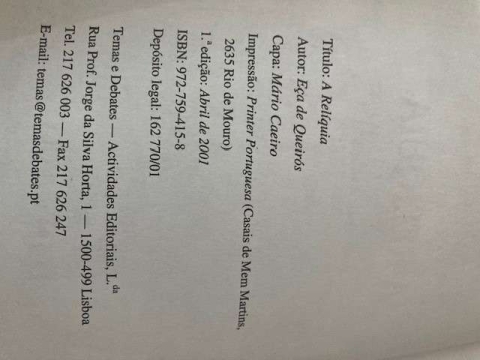 Título: A Relíquia
Autor: Eça de Queirós
Capa: Mário Caeiro
Impressão: Printer Portuguesa (Casais de Mem Martins,
2635 Rio de Mouro)
1.ª edição: Abril de 2001
ISBN: 972-759-415-8
Depósito legal: 162 770/01
Temas e Debates — Actividades Editoriais, L.da
Rua Prof. Jorge da Silva Horta, 1 — 1500-499 Lisboa
Tel. 217 626 003 — Fax 217 626 247
E-mail: temas@temasdebates.pt